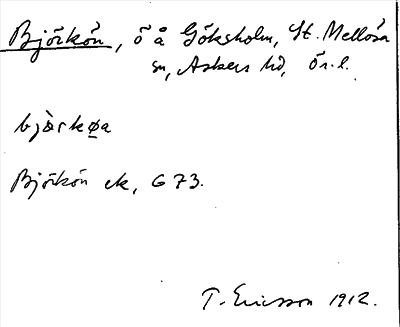 Björkön, ö å Göksholm, St. Mellösa
sn, Askers hd, Ör. l.
bjò̤rkø̱a
Björkön ek, G 73.
T. Ericsson 1912.